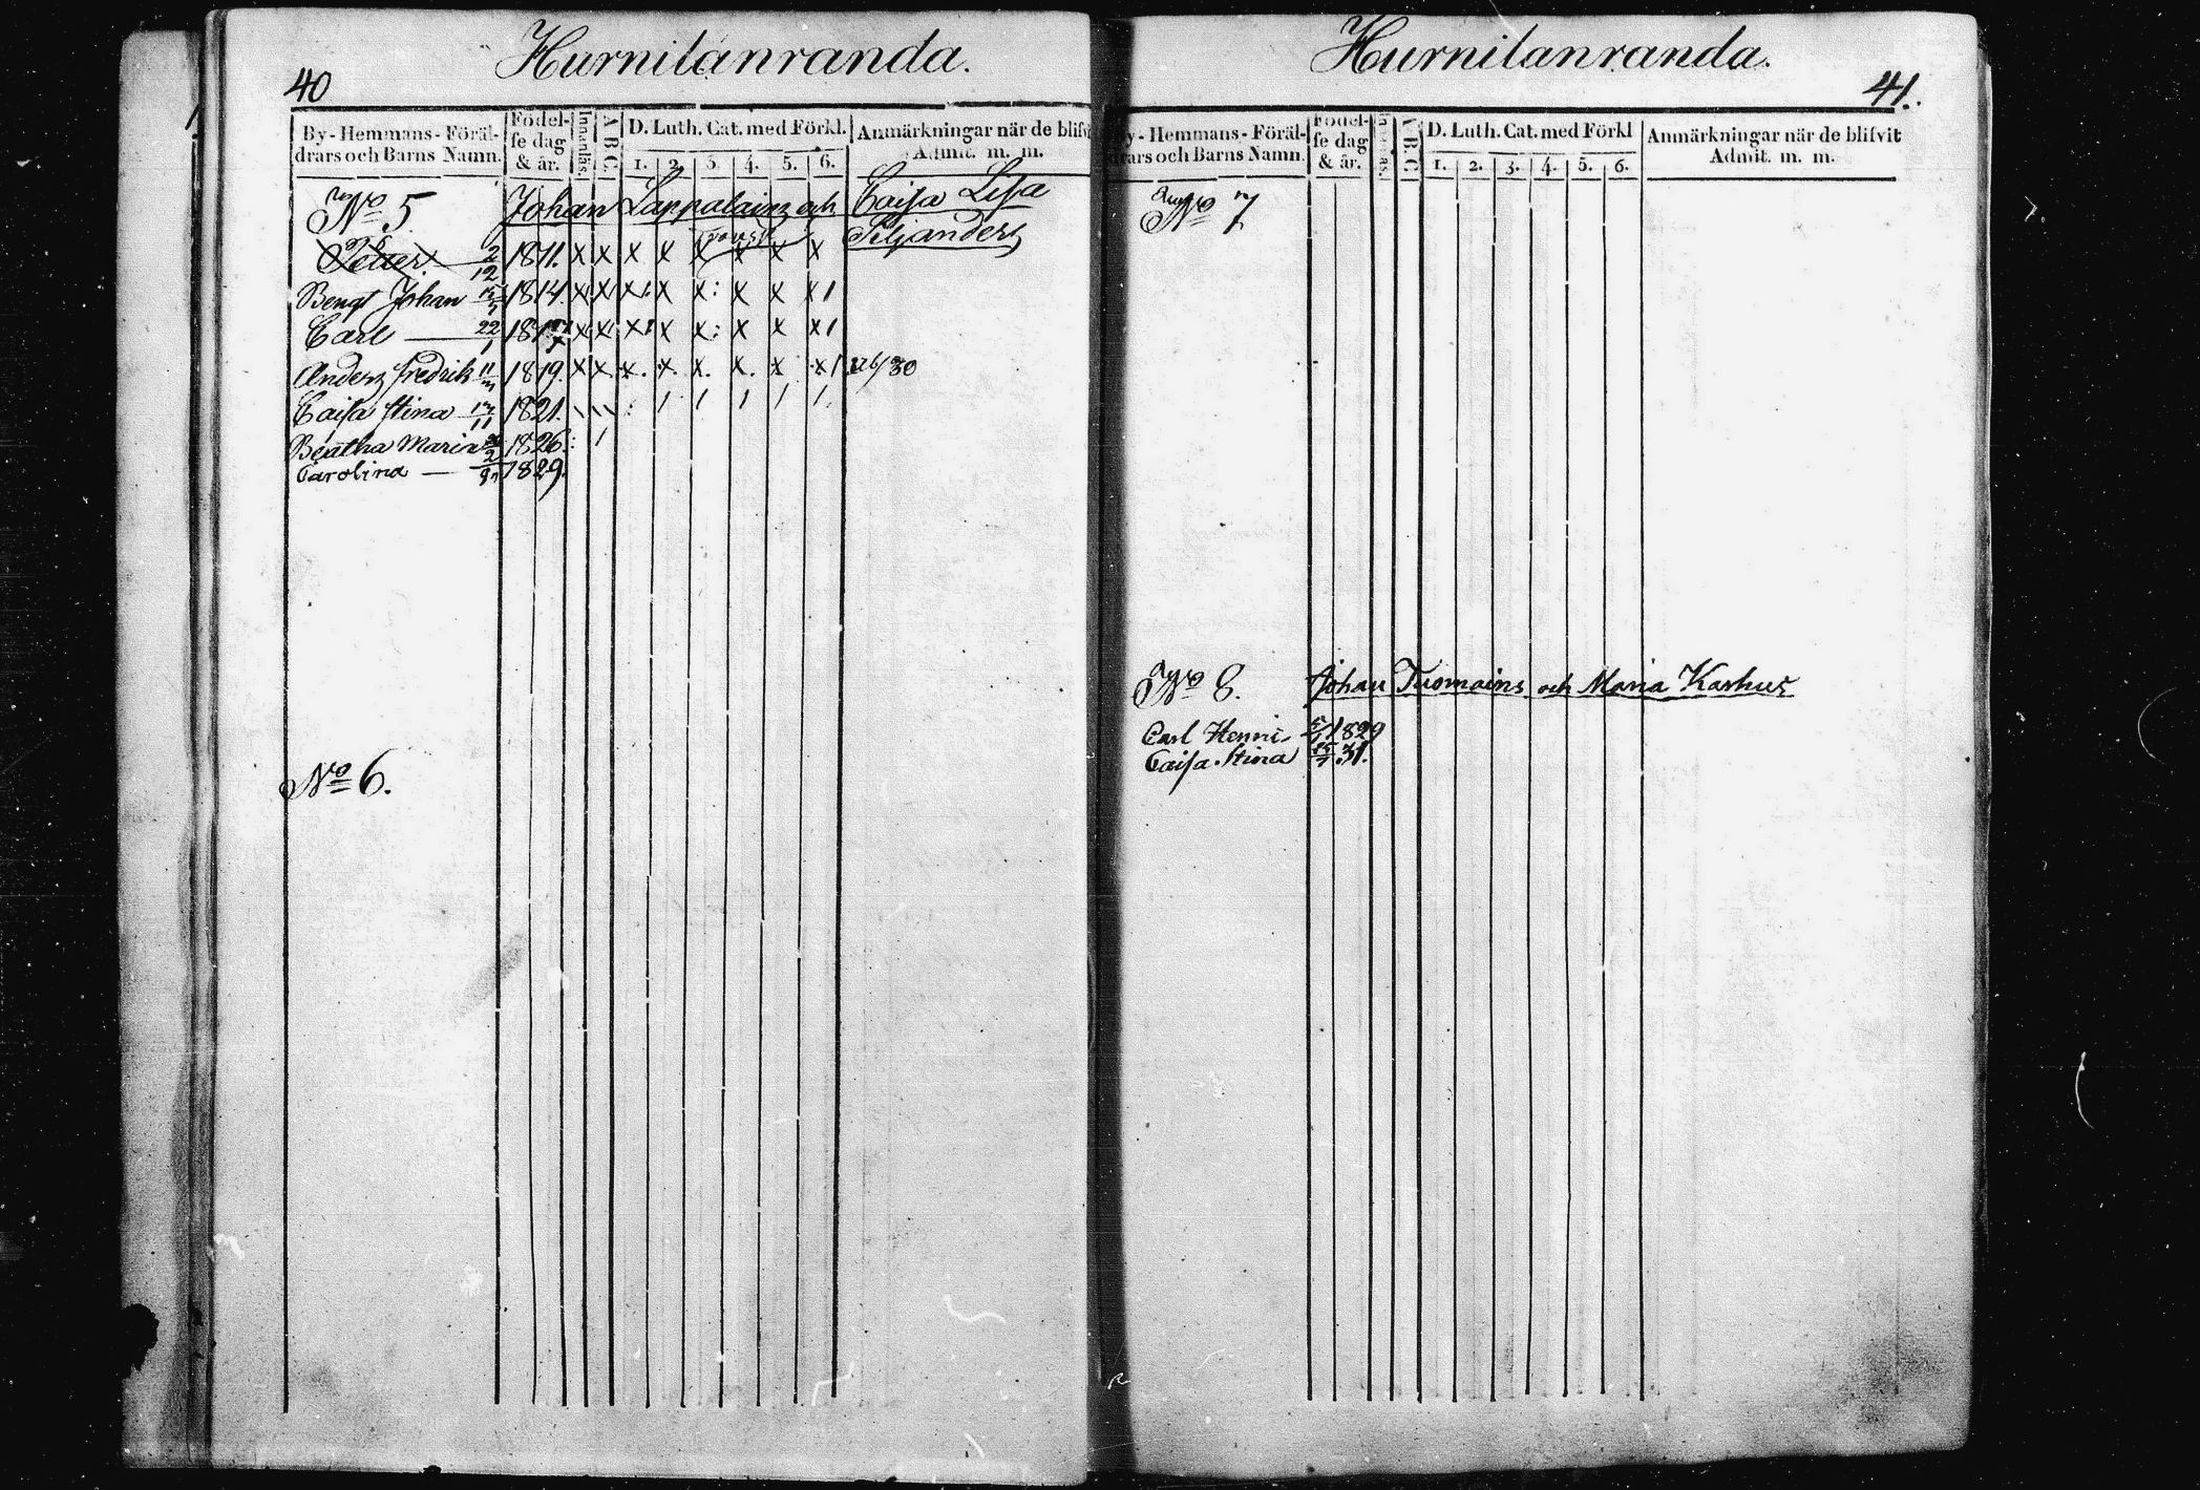 Hurnilanranda.
40
By-Hemmans-Föräl-
drars och Barns Namn.
Födel-
ſe dag
& år.
Innanläs.
A B C.
D. Luth. Cat. med Förkl.
1. 2. 3. 4. 5. 6.
Anmärkningar när de bliſvi
Admit. m. m.
No 5. Johan Lappalain och Caisa Lisa
Siljanders
Petter 2/12 1811. x x x x x x x x
Bengt Johan 1814. x x x x x x x x
Carl — 22/1 x x x x x x x x
Anders Fredrik 1819. x x x x x x x x
Caisa Stina 1821.
Beatha Maria 1826.
Carolina — 1829.
No 6.
Hurnilanranda.
41.
y-Hemmans-Föräl-
drars och Barns Namn.
Födel-
ſe dag
& år.
A.B.C.
D. Luth. Cat. med Förkl
1. 2. 3. 4. 5. 6.
Anmärkningar när de bliſvit
Admit. m. m.
No 7
No 8. Johan Tuomains och Maria Karhus
Carl Henric 1829
Caisa Stina 31.